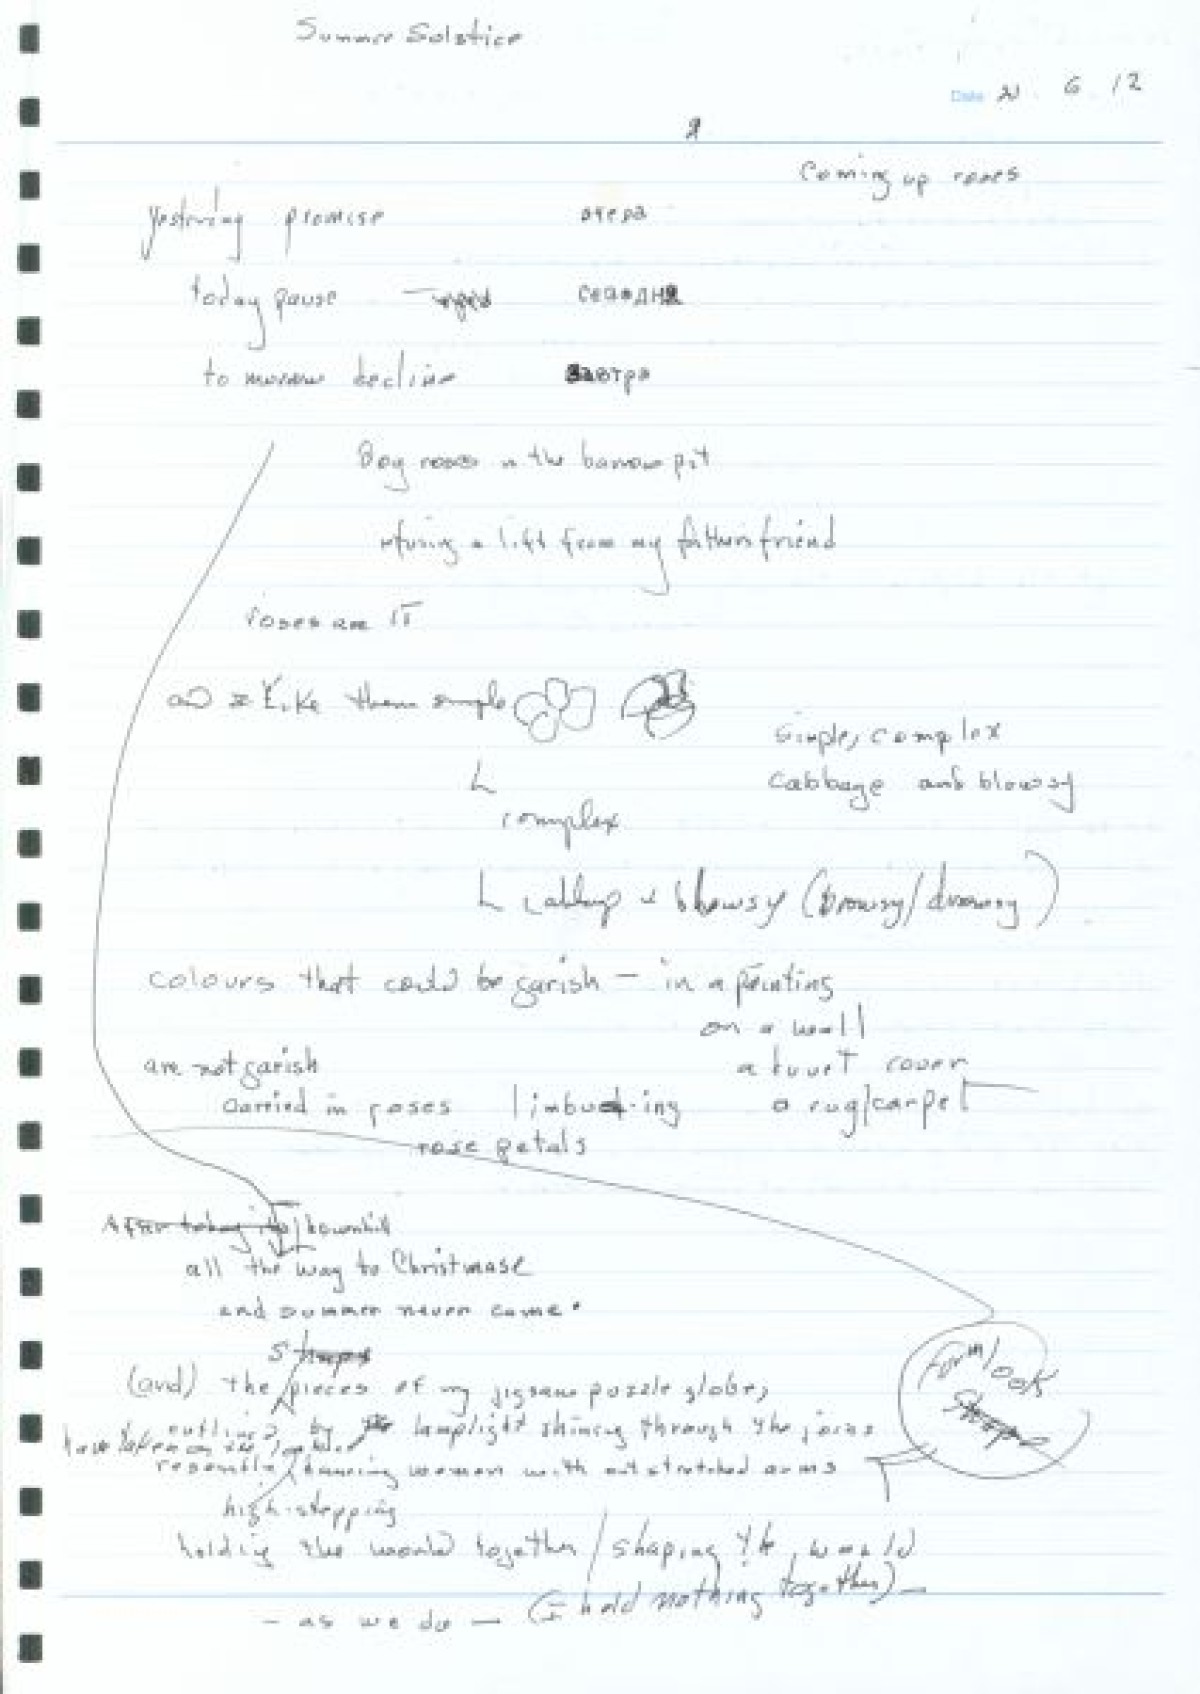 Summer Solstice
Date 21. 6. 12
Coming up roses
promise
today pause сегодня
to morrow decline завтра
Dog roses in the barrow pit
refusing a lift from my father's friend
roses are IT
I like them simple
simple, complex
cabbage and blowsy
complex
blowsy (browsy/drowsy)
colours that could be garish — in a painting
on a wall
are not garish a duvet cover
carried in roses a rug/carpet
rose petals
After downhill
all the way to Christmase
and summer never came.
form/look
(and) the pieces of my jigsaw puzzle globe,
outlined by the lamplight shining through the joins
have taken on the
resemble dancing women with outstretched arms
high-stepping
holding the world together / shaping the world
— as we do — (I hold nothing together) —